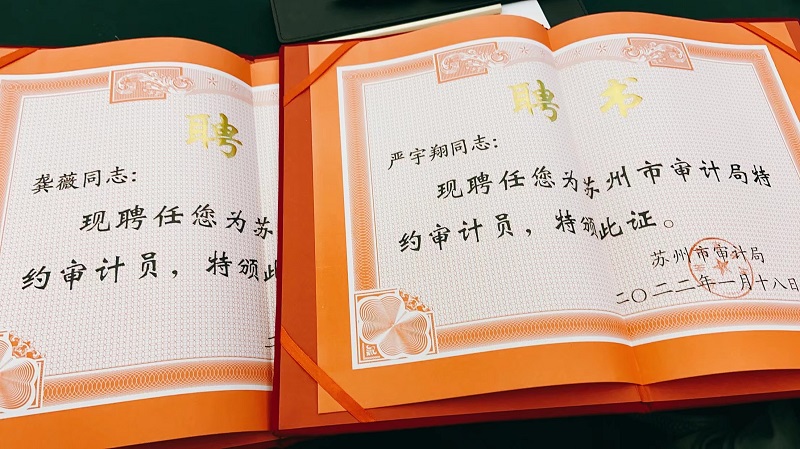 聘
龚薇同志：
现聘任您为苏
约审计员，特颁此
聘书
严宇翔同志：
现聘任您为苏州市审计局特
约审计员，特颁此证。
苏州市审计局
二〇二二年一月十八日